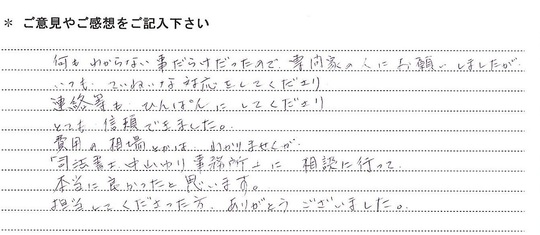 * ご意見やご感想をご記入下さい
何もわからない事だらけだったので 専門家の人にお願いしましたが
いつも ていねいな対応をしてくださり
連絡等も ひんぱんに してくださり
とても 信頼できました。
費用の相場とかは わかりませんが
「司法書士中山ゆり事務所」に 相談に行って
本当に良かったと思います。
担当してくださった方 ありがとうございました。